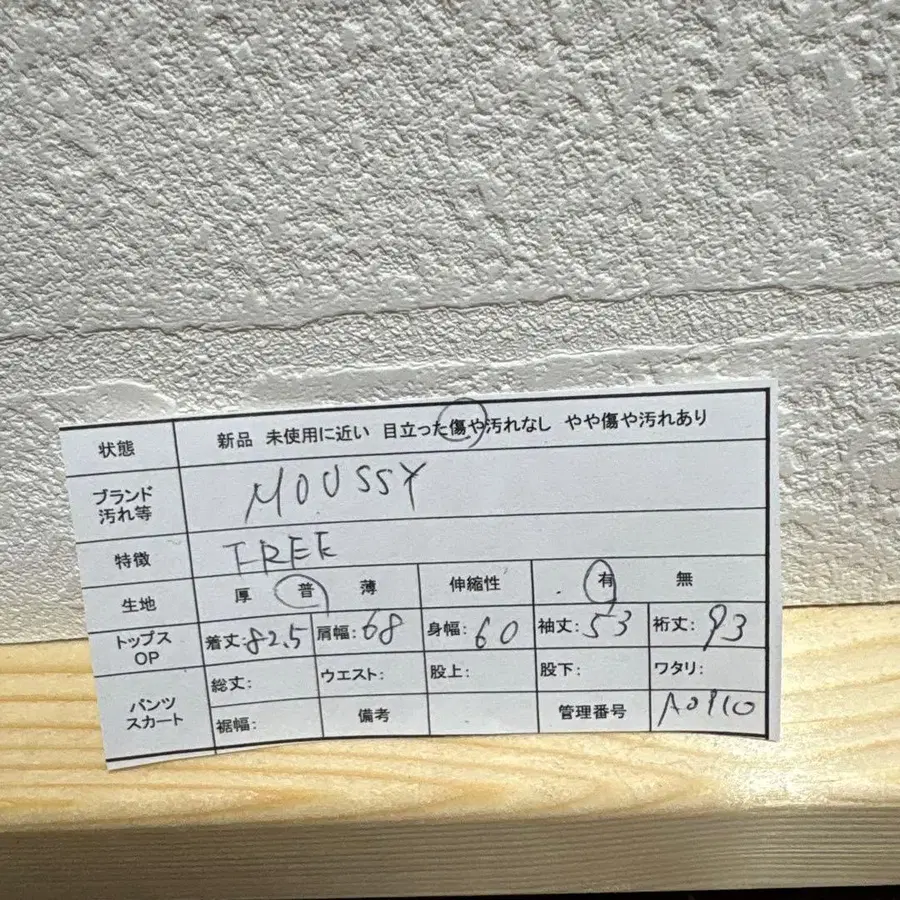 状態 新品 未使用に近い 目立った傷や汚れなし やや傷や汚れあり
ブランド MOUSSY
汚れ等
特徴 FREE
生地 厚 普 薄 伸縮性 有 無
トップス 着丈:82.5 肩幅:68 身幅:60 袖丈:53 裄丈:93
OP
パンツ 総丈: ウエスト: 股上: 股下: ワタリ:
スカート 裾幅: 備考 管理番号